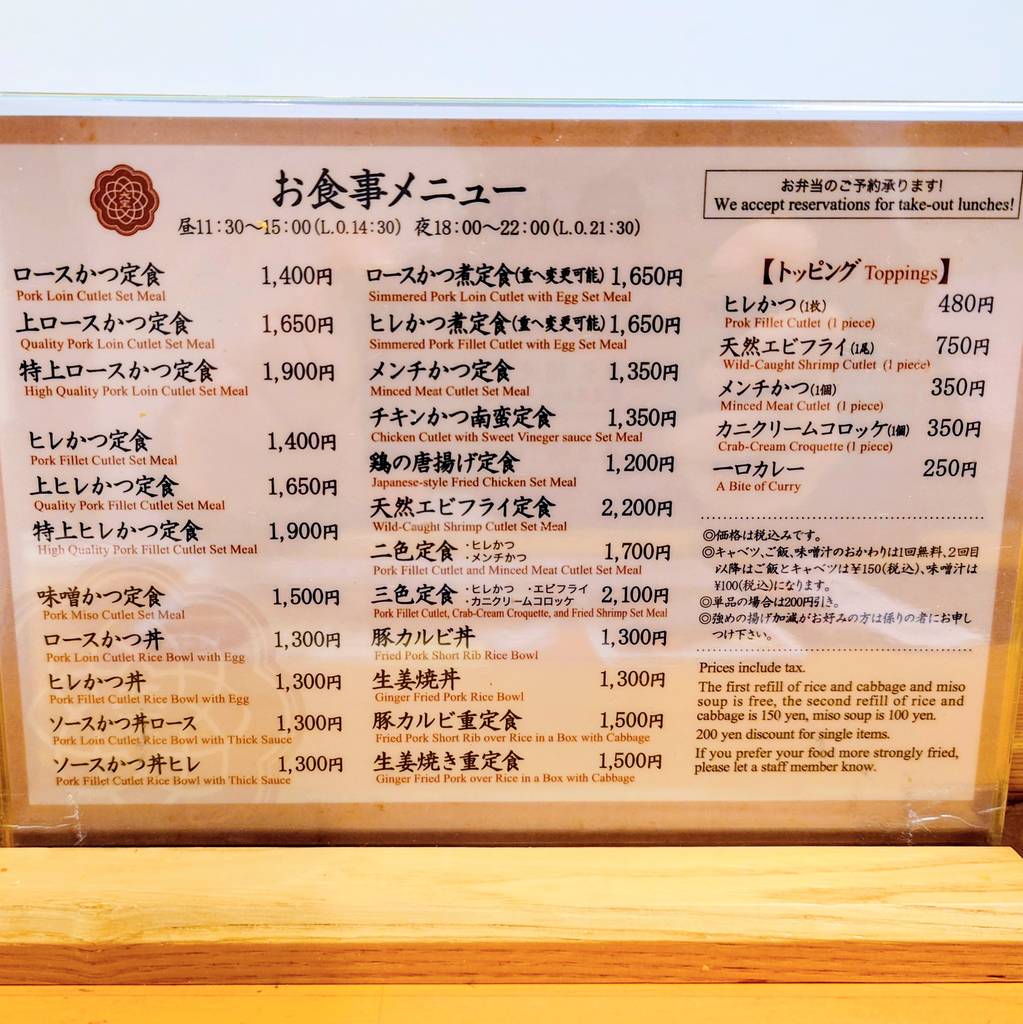 お食事メニュー
昼11:30〜15:00(L.O.14:30) 夜18:00〜22:00(L.O.21:30)
ロースかつ定食 1,400円
Pork Loin Cutlet Set Meal
上ロースかつ定食 1,650円
Quality Pork Loin Cutlet Set Meal
特上ロースかつ定食 1,900円
High Quality Pork Loin Cutlet Set Meal
ヒレかつ定食 1,400円
Pork Fillet Cutlet Set Meal
上ヒレかつ定食 1,650円
Quality Pork Fillet Cutlet Set Meal
特上ヒレかつ定食 1,900円
High Quality Pork Fillet Cutlet Set Meal
味噌かつ定食 1,500円
Pork Miso Cutlet Set Meal
ロースかつ丼 1,300円
Pork Loin Cutlet Rice Bowl with Egg
ヒレかつ丼 1,300円
Pork Fillet Cutlet Rice Bowl with Egg
ソースかつ丼ロース 1,300円
Pork Loin Cutlet Rice Bowl with Thick Sauce
ソースかつ丼ヒレ 1,300円
Pork Fillet Cutlet Rice Bowl with Thick Sauce
ロースかつ煮定食(重へ変更可能) 1,650円
Simmered Pork Loin Cutlet with Egg Set Meal
ヒレかつ煮定食(重へ変更可能) 1,650円
Simmered Pork Fillet Cutlet with Egg Set Meal
メンチかつ定食 1,350円
Minced Meat Cutlet Set Meal
チキンかつ南蛮定食 1,350円
Chicken Cutlet with Sweet Vineger sauce Set Meal
鶏の唐揚げ定食 1,200円
Japanese-style Fried Chicken Set Meal
天然エビフライ定食 2,200円
Wild-Caught Shrimp Cutlet Set Meal
二色定食 ・ヒレかつ ・メンチかつ 1,700円
Pork Fillet Cutlet and Minced Meat Cutlet Set Meal
三色定食 ・ヒレかつ ・エビフライ ・カニクリームコロッケ 2,100円
Pork Fillet Cutlet, Crab-Cream Croquette, and Fried Shrimp Set Meal
豚カルビ丼 1,300円
Fried Pork Short Rib Rice Bowl
生姜焼丼 1,300円
Ginger Fried Pork Rice Bowl
豚カルビ重定食 1,500円
Fried Pork Short Rib over Rice in a Box with Cabbage
生姜焼き重定食 1,500円
Ginger Fried Pork over Rice in a Box with Cabbage
お弁当のご予約承ります!
We accept reservations for take-out lunches!
【トッピング Toppings】
ヒレかつ(1枚) 480円
Prok Fillet Cutlet (1 piece)
天然エビフライ(1尾) 750円
Wild-Caught Shrimp Cutlet (1 piece)
メンチかつ(1個) 350円
Minced Meat Cutlet (1 piece)
カニクリームコロッケ(1個) 350円
Crab-Cream Croquette (1 piece)
一口カレー 250円
A Bite of Curry
◎価格は税込みです。
◎キャベツ、ご飯、味噌汁のおかわりは1回無料、2回目
以降はご飯とキャベツは¥150(税込)、味噌汁は
¥100(税込)になります。
◎単品の場合は200円引き。
◎強めの揚げ加減がお好みの方は係りの者にお申し
つけ下さい。
Prices include tax.
The first refill of rice and cabbage and miso
soup is free, the second refill of rice and
cabbage is 150 yen, miso soup is 100 yen.
200 yen discount for single items.
If you prefer your food more strongly fried,
please let a staff member know.